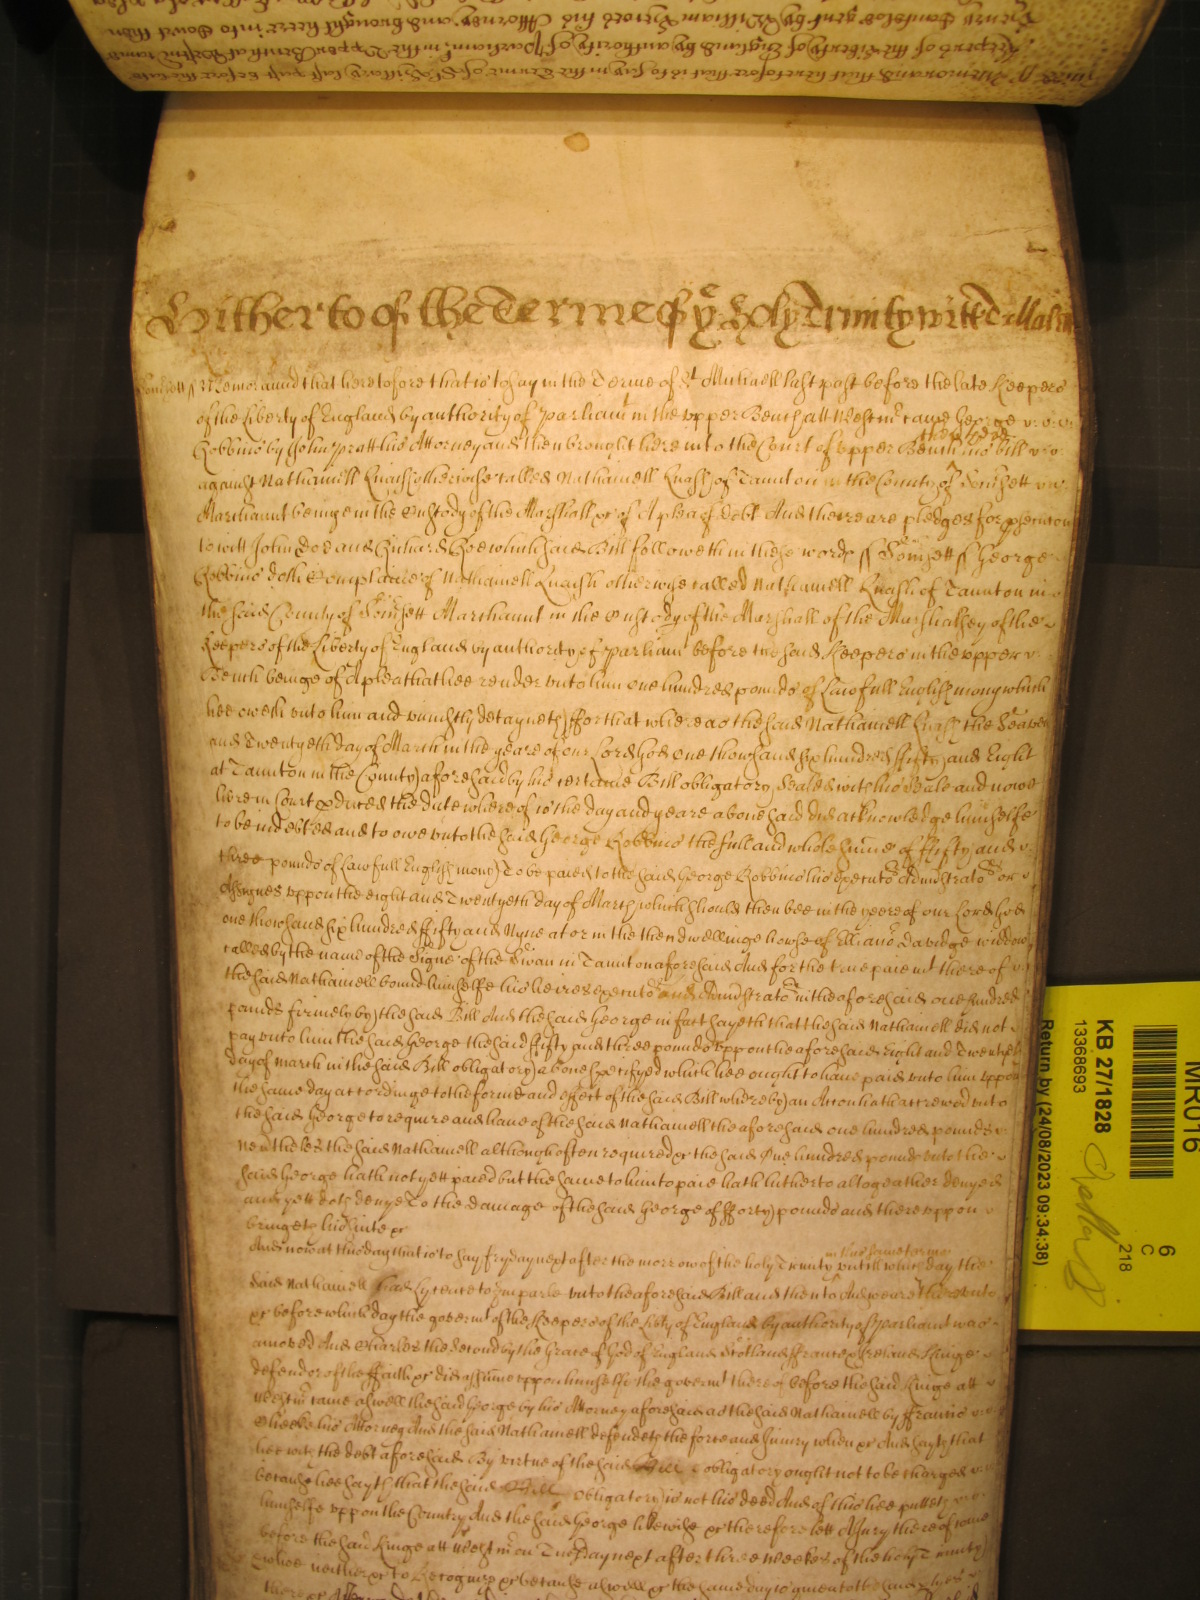 Hitherto of the Terme of ye Holy Trinity witt
Memorand that heretofore that is to say in the Terme of St Michaell last past before the late Keepers
of the Liberty of England by authority of Parliamt in the upper Bench att Westmr came George
Robbins by John Pratt his Attorney and then brought here into the Court of upper Bench then there his Bill
against Nathaniell Quash otherwise called Nathaniell Quash of Taunton in the County of Somsett
Marchaunt beinge in the Custody of the Marshall &c of A plea of debt And there are pledges for psecucon
to witt John Doe and Richard Roe which said Bill followeth in these words ss Somsett ss George
Robbins doth Complaine of Nathaniell Quash otherwise called Nathaniell Quash of Taunton in
the said County of Somsett Marchaunt in the Custody of the Marshall of the Marshalsey of the
Keepers of the Liberty of England by authority of Parliamt before the said Keepers in the upper
Bench beinge of A plea that hee render unto him one hundred pounds of Lawfull English mony which
hee oweth unto him and uniustly detayneth ffor that whereas the said Nathaniell Quash the Seaven
and Twentyeth day of March in the yeare of our Lord God one thowsand six hundred ffifty and Eight
at Taunton in the County aforesaid by his certaine Bill obligatory Sealed with his Seale and nowe
here in Court pduced the date whereof is the day and yeare abovesaid did acknowledge himselfe
to be indebted and to owe unto the said George Robbins the full and whole sume of ffifty and
three pounds of Lawfull English mony To be paied to the said George Robbins his Executors Administrators or
Assignes uppon the eight and Twentyeth day of March which should then bee in the yeere of our Lord God
one thowsand six hundred ffifty and Nyne at or in the then dwellinge howse of Ellianor Davidge widdow
called by the name of the Signe of the Swan in Taunton aforesaid And for the true paiemt thereof
the said Nathaniell bound himselfe his heires executors and Administrators in the aforesaid one hundred
pounds firmely by the said Bill And the said George in fact sayeth that the said Nathaniell did not
pay unto him the said George the said ffifty and three pounds uppon the aforesaid Eight and Twentyeth
day of March in the said Bill obligatory above specifyed which hee ought to have paid unto him uppon
the same day accordinge to the forme and effect of the said Bill whereby an Accon hath accrewed unto
the said George to require and have of the said Nathaniell the aforesaid one hundred pounds
Nevertheles the said Nathaniell although often required &c the said One hundred pounds unto the
said George hath not yett paied but the same to him to paie hath hitherto altogeather denyed
and yett doth denye To the damage of the said George of fforty pounds and thereuppon
bringeth his suite &c
And now at this day that is to say fryday next after the morrow of the holy Trinity in this same terme untill which day the
said Nathaniell had Lycence to Imparle unto the aforesaid Bill and then to Answeare thereunto
&c before which day the govermt of the Keepers of the Libty of England by authority of Parliamt was
amoved And Charles the second by the Grace of God of England Scotland ffrance & Ireland Kinge
defendor of the ffaith &c did assume uppon himselfe the govermt thereof before the said Kinge att
Westmr came aswell the said George by his Attorney aforesaid as the said Nathaniell by ffrancis
Cheeke his Attorney And the said Nathaniell defendeth the force and Iniury when &c And sayth that
hee with the debt aforesaid By virtue of the said Bill obligatory ought not to be charged
because hee sayth that the said Bill obligatory is not his deed And of this hee putteth
himselfe uppon the Country And the said George likewise &c therefore lett A Jury thereof come
before the said Kinge att Westmr on Tuesday next after three weekes of the holy Trinity
& whoe neither &c to Recognize &c because aswell &c the same day is given to the said ptyes
there &c
MR016
6
C
218
KB 27/1828
13368693
Return by (24/08/2023 09:34:38)